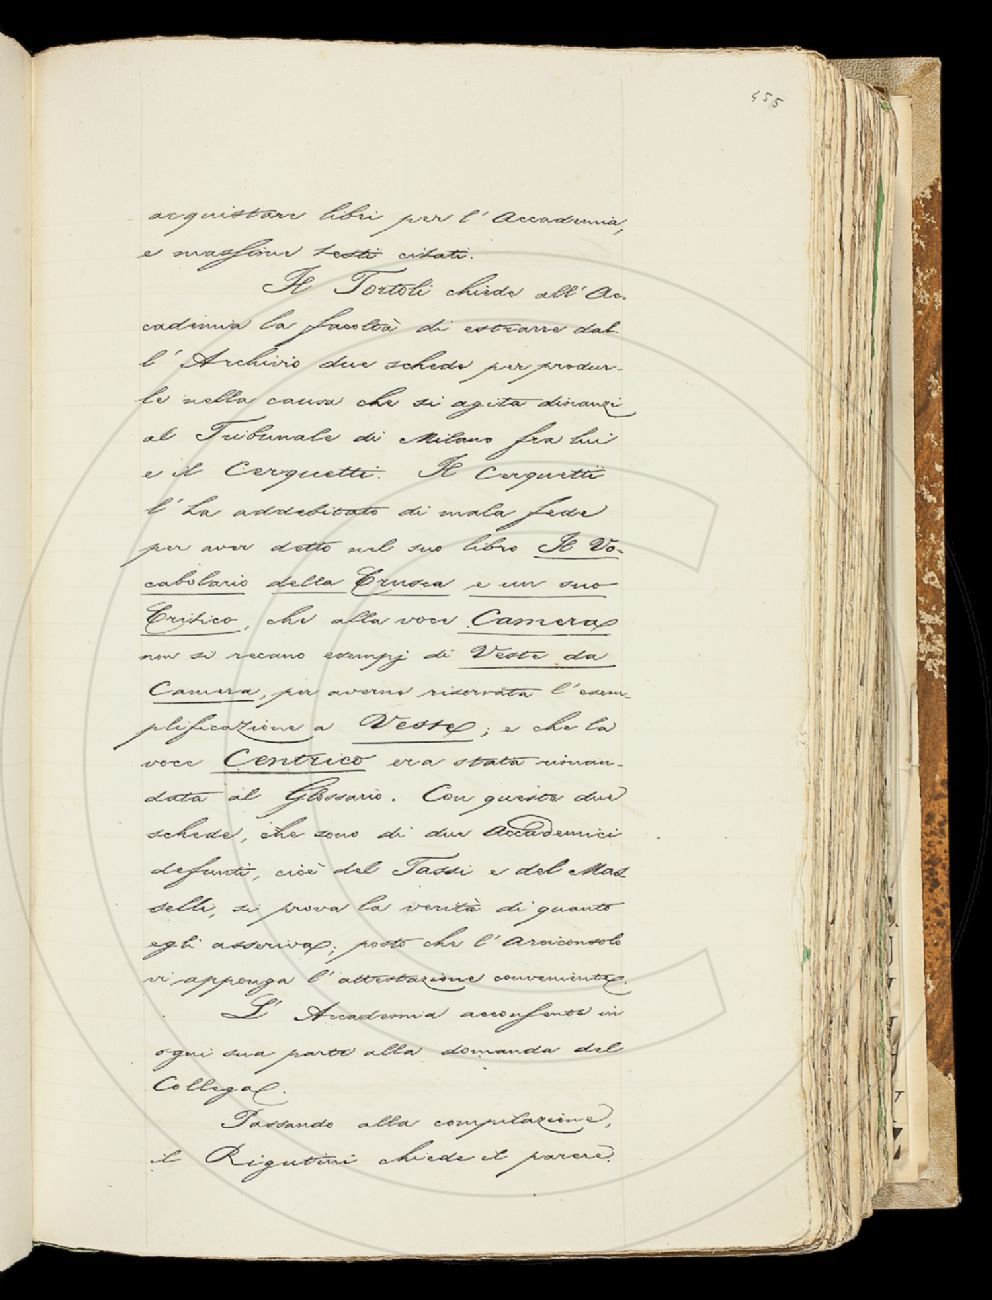 455
acquistare libri per l'Accademia,
e massime testi citati.
Il Tortoli chiede all'Ac-
cademia la facoltà di estrarre dal-
l'Archivio due schede per produr-
le nella causa che si agita dinanzi
al Tribunale di Milano fra lui
e il Cerquetti. Il Cerquetti
l'ha addebitato di mala fede
per aver detto nel suo libro Il Vo-
cabolario della Crusca e un suo
Critico, che alla voce Camera
non si recano esempj di Veste da
Camera, per averne riservata l'esem-
plificazione a Veste; e che la
voce Centrico era stata riman-
data al Glossario. Con queste due
schede, che sono di due Accademici
defunti, cioè del Tassi e del Mas-
selli, si prova la verità di quanto
egli asseriva; posto che l'Arciconsolo
vi apponga l'attestazione conveniente.
L'Accademia acconsente in
ogni sua parte alla domanda del
Collega.
Passando alla compilazione,
il Rigutini chiede il parere